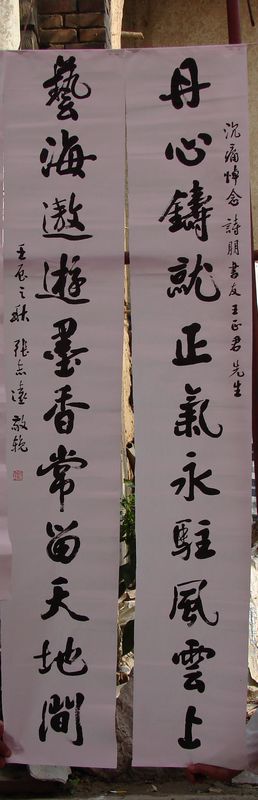 沉痛悼念詩朋書友王正君先生
丹心鑄就正氣永駐風雲上
藝海遨遊墨香常留天地間
壬辰之秋張志遠敬輓